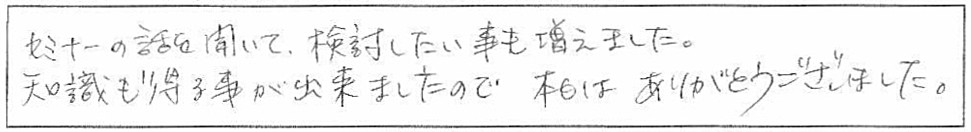 セミナーの話を聞いて、検討したい事も増えました。
知識も得る事が出来ましたので 本日は ありがとうございました。